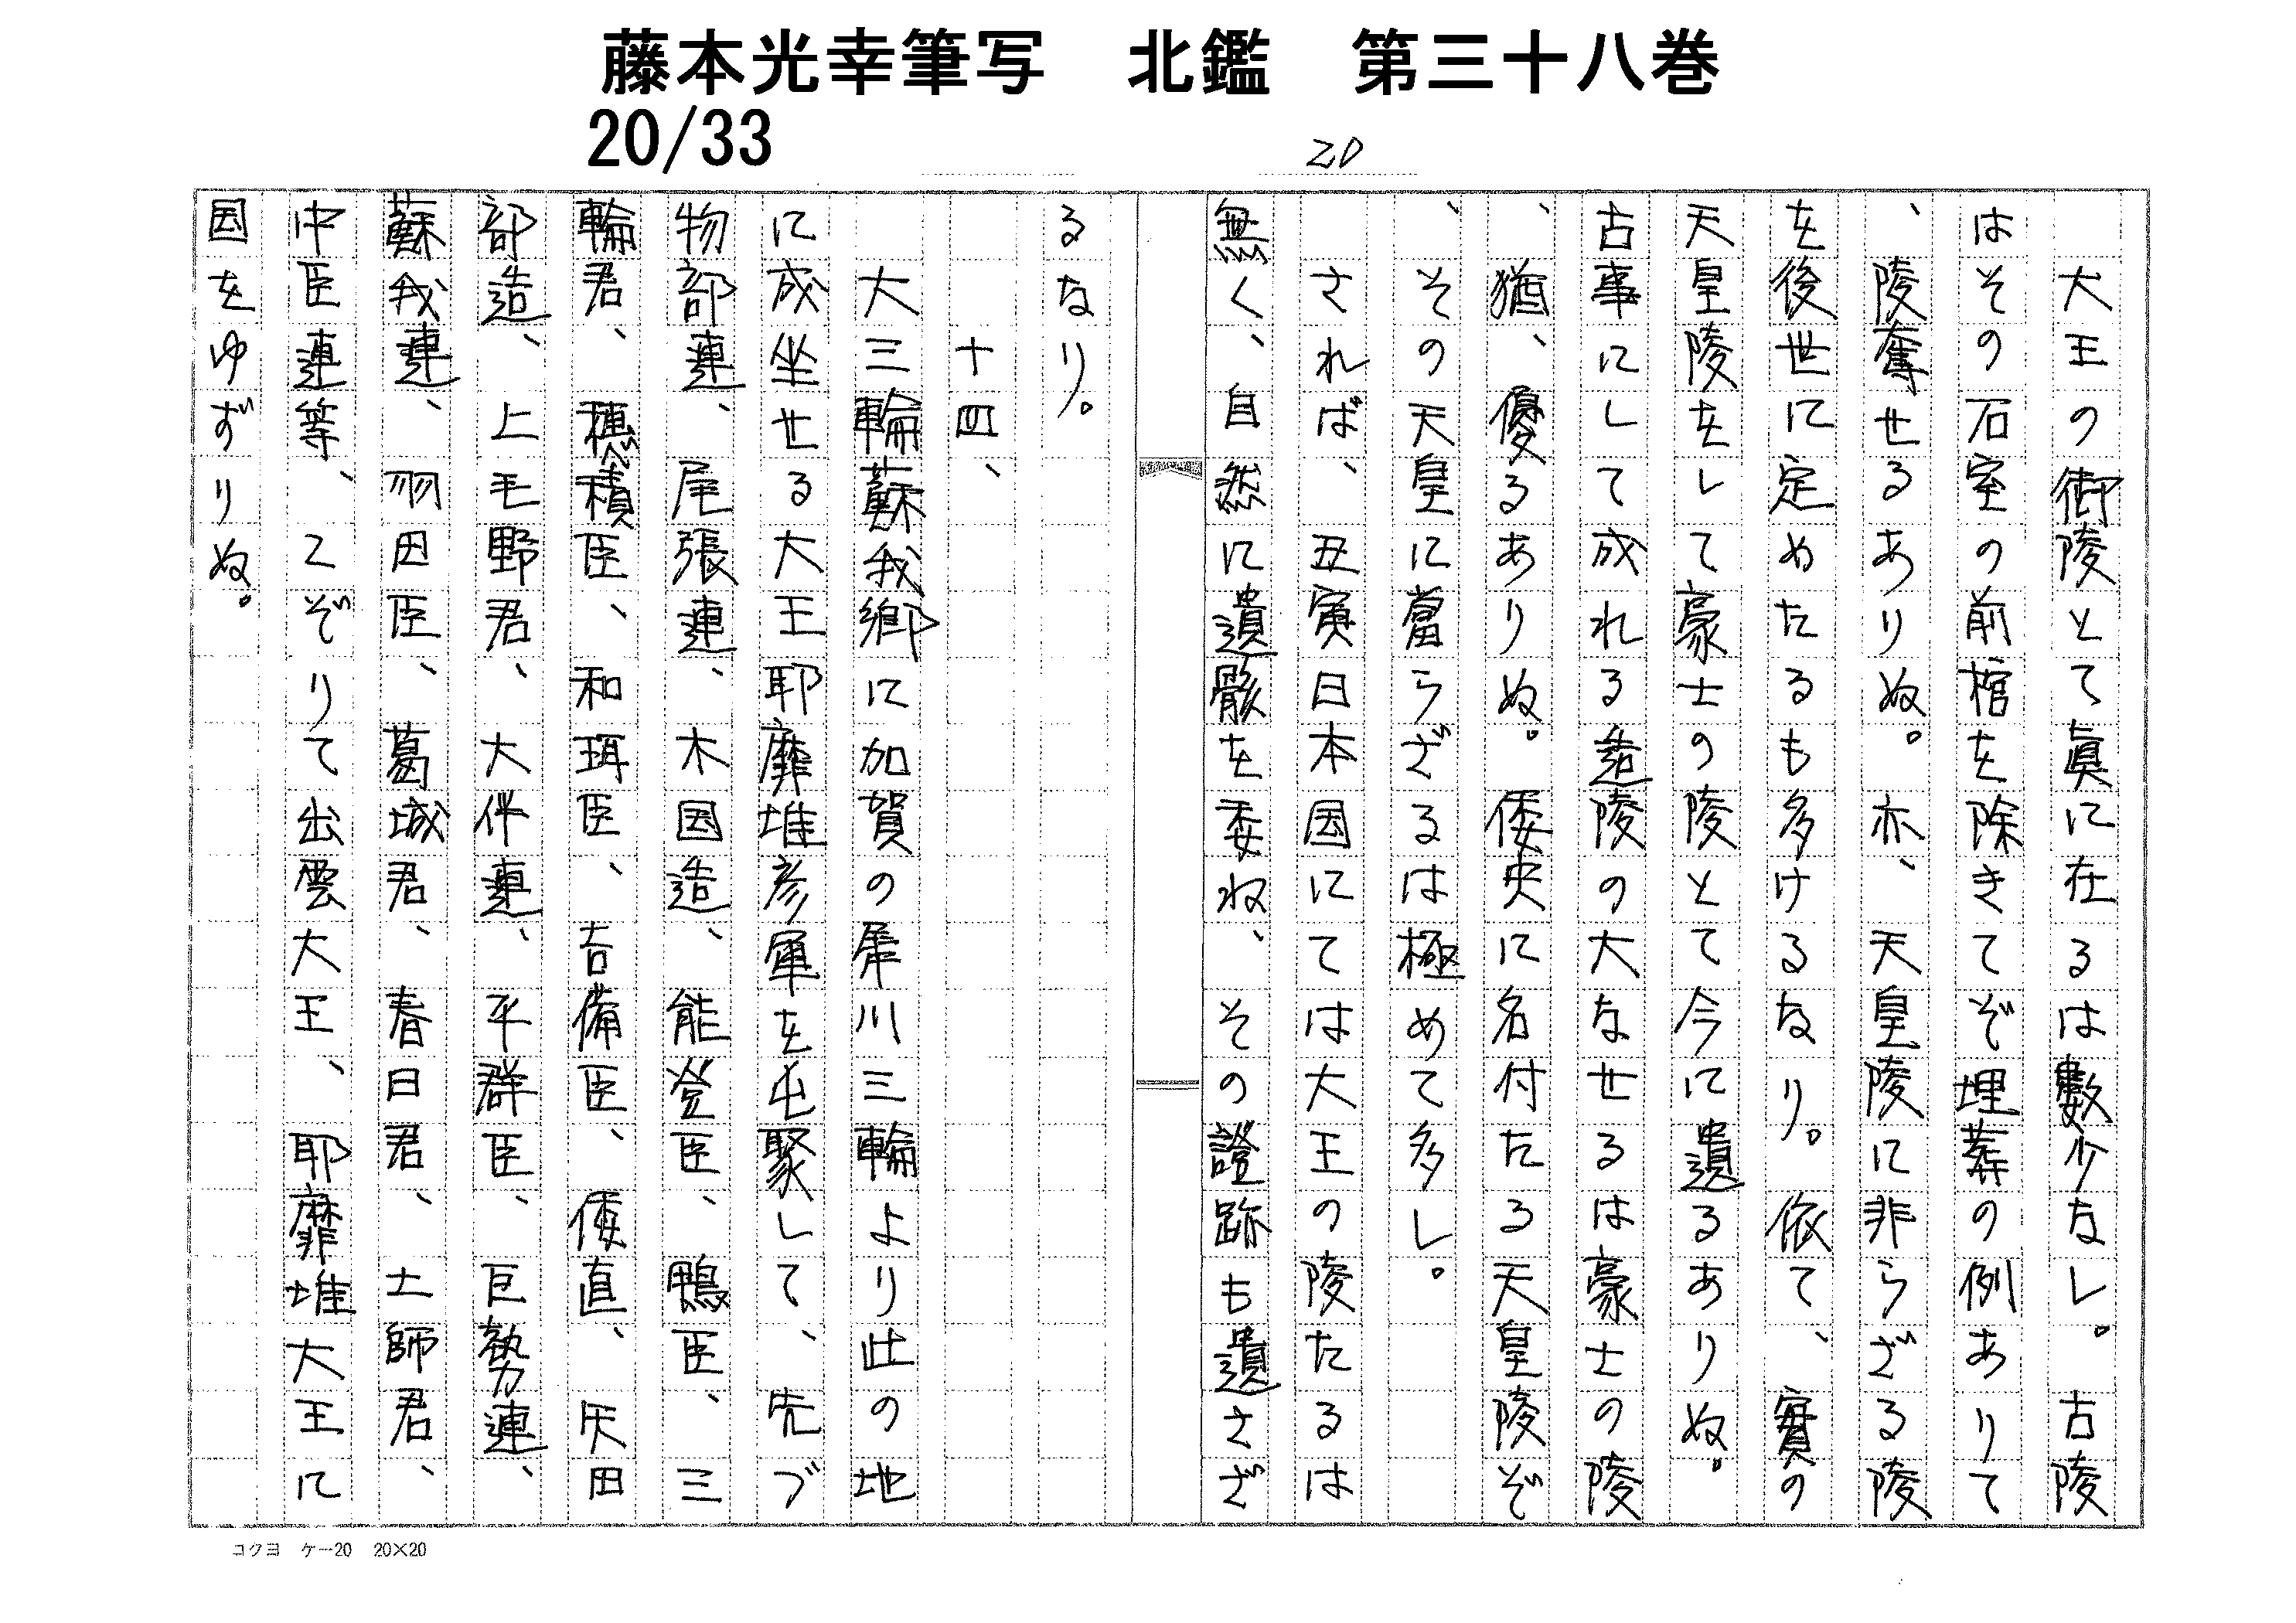 藤本光幸筆写　北鑑　第三十八巻
20/33
20
大王の御陵とて眞に在るは數少なし。古陵
はその石室の前棺を除きてぞ埋葬の例ありて
、陵奪せるありぬ。亦、天皇陵に非らざる陵
を後世に定めたるも多けるなり。依て、實の
天皇陵をして豪士の陵とて今に遺るありぬ。
古事にして成れる造陵の大なせるは豪士の陵
、猶、優るありぬ。倭史に名付たる天皇陵ぞ
、その天皇に當らざるは極めて多し。
されば、丑寅日本国にては大王の陵たるは
無く、自然に遺骸を委ね、その證跡も遺さざ
るなり。
十四、
大三輪蘇我郷に加賀の犀川三輪より此の地
に成坐せる大王耶靡堆彦軍を屯聚して、先づ
物部連、尾張連、木国造、能登臣、鴨臣、三
輪君、穂積臣、和珥臣、吉備臣、倭直、矢田
部造、上毛野君、大伴連、平群臣、巨勢連、
蘇我連、羽田臣、葛城君、春日君、土師君、
中臣連等、こぞりて出雲大王、耶靡堆大王に
国をゆずりぬ。
コクヨ　ケー20　20×20